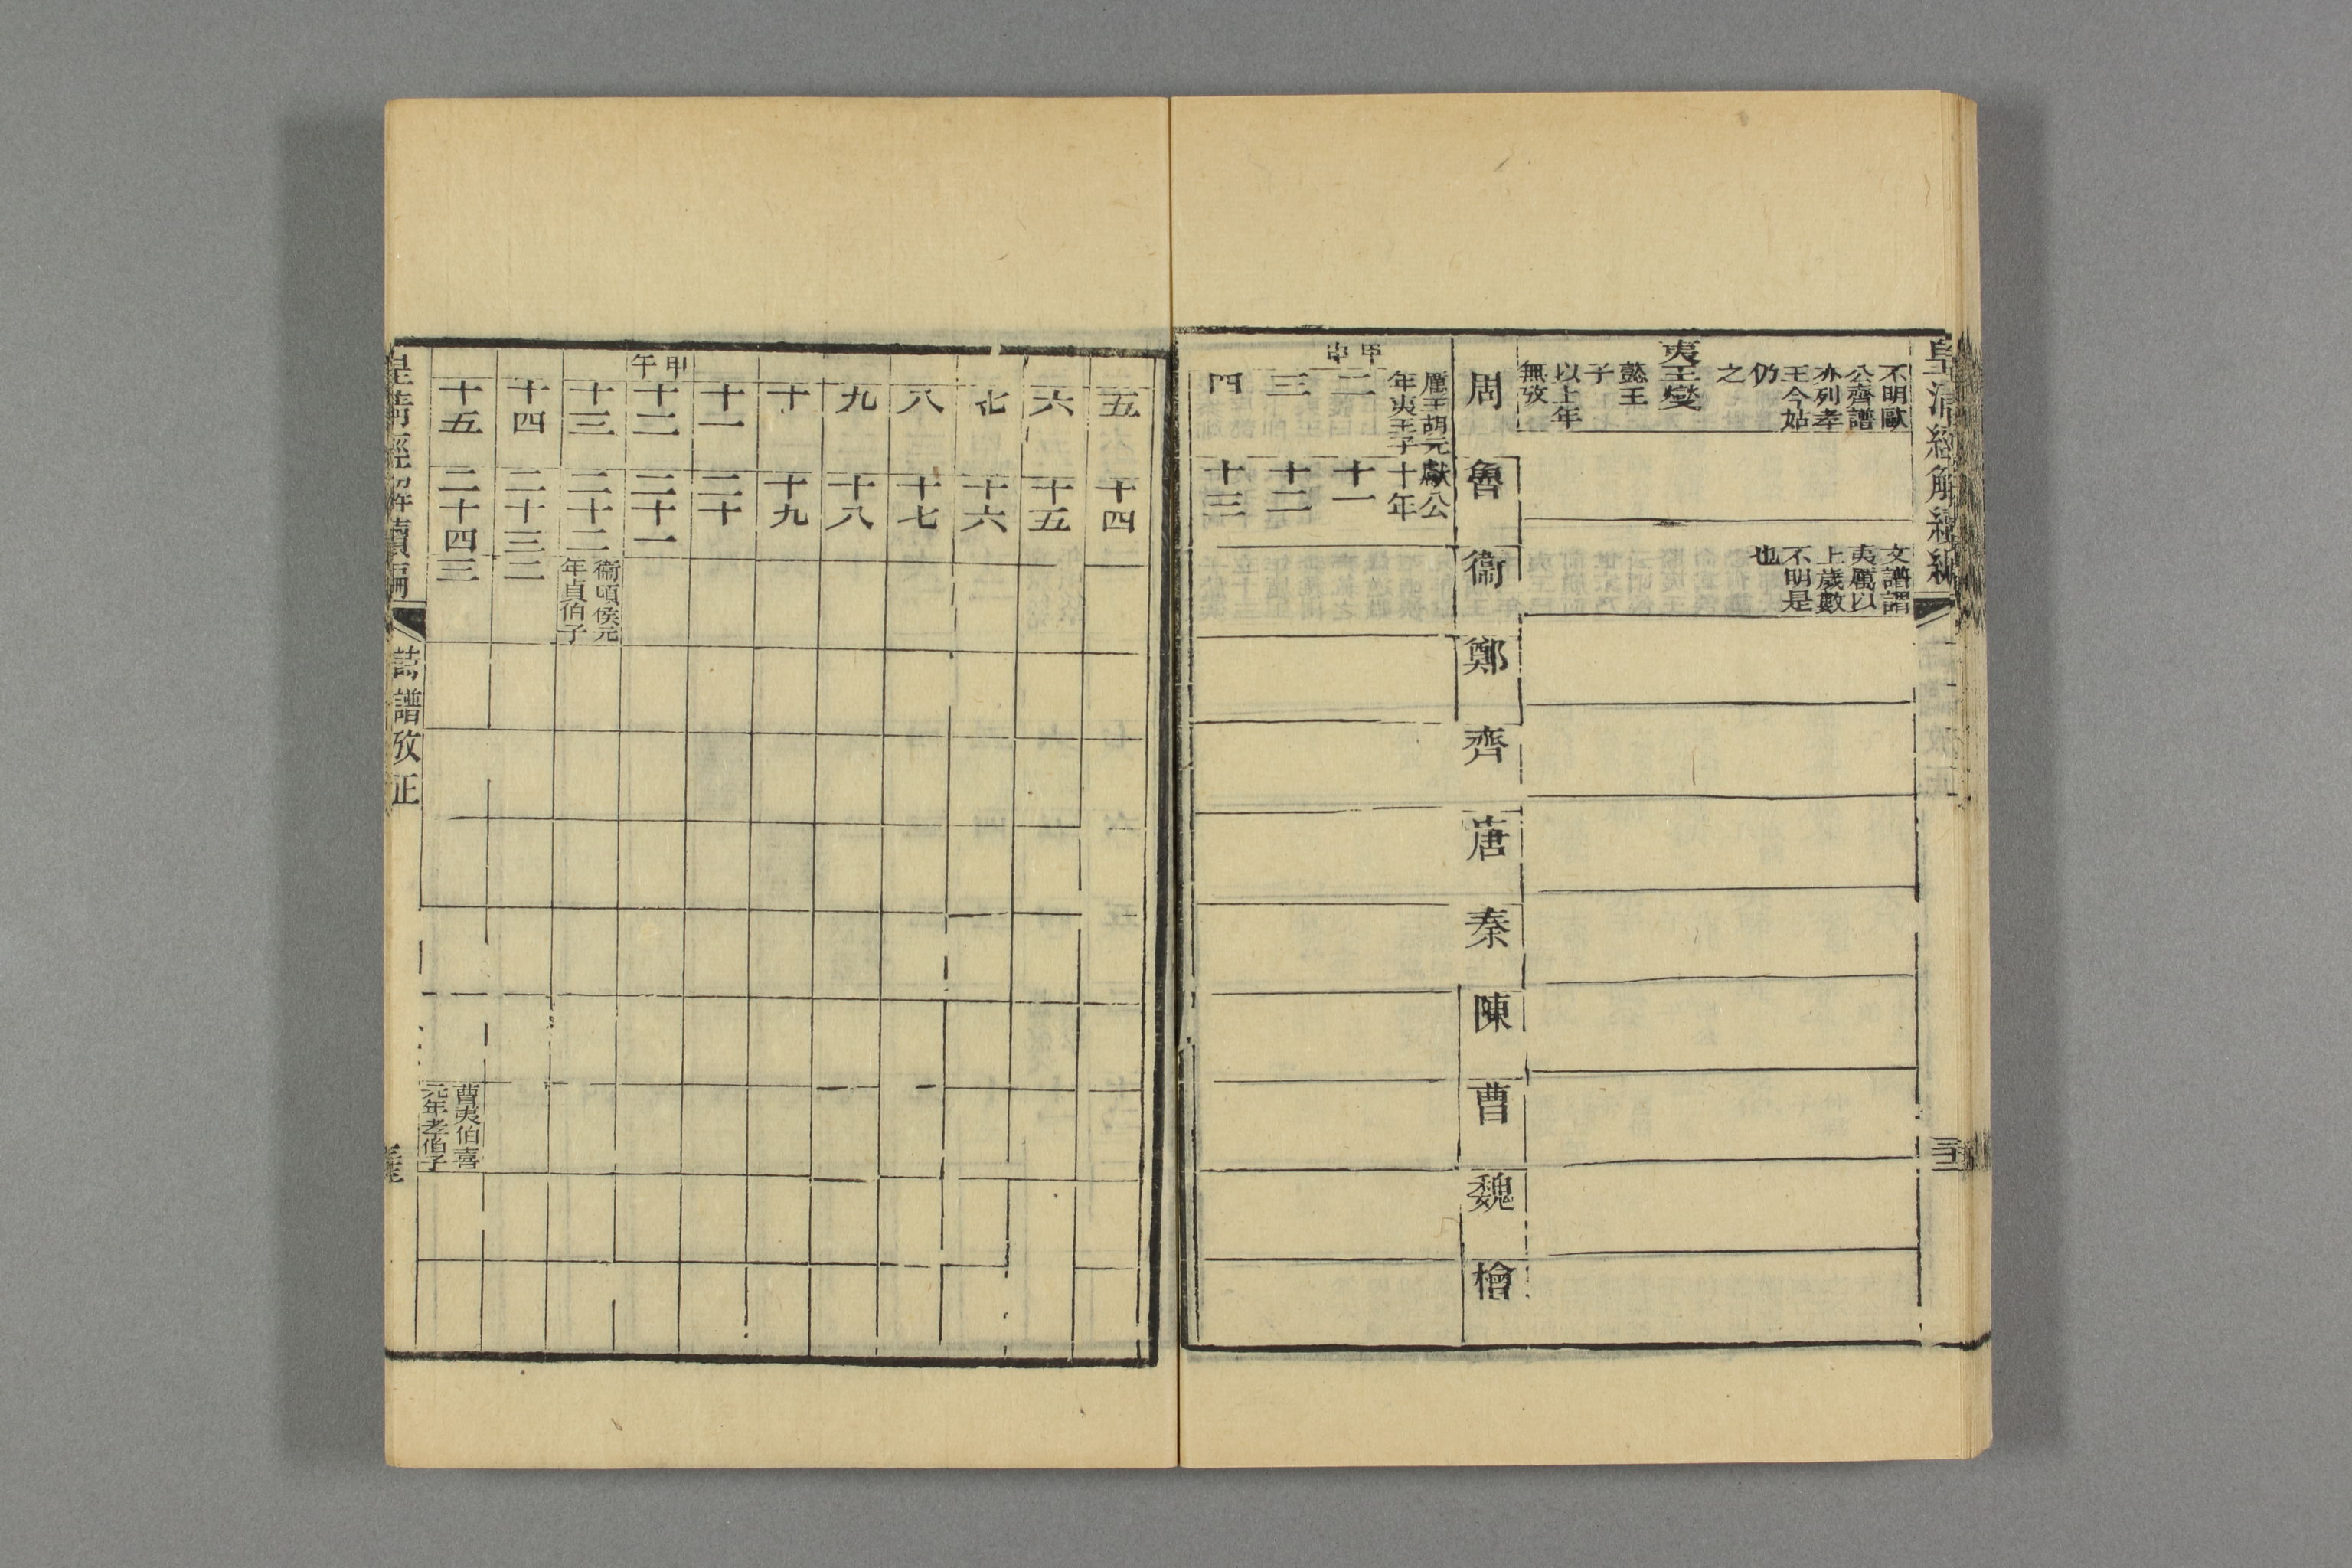 皇清經解續編
不明歐
公齊譜
亦列孝
王今姑
仍
之
文譜謂
夷厲以
上歲數
不明是
也
夷王燮
懿王
子
以上年
無攷
周
魯
衞
鄭
齊
唐
秦
陳
曹
魏
檜
厲王胡元
年夷王子
獻公
十年
甲申
二
十一
三
十二
四
十三
五
十四
六
十五
七
十六
八
十七
九
十八
十
十九
十一
二十
甲午
十二
二十一
十三
二十二
衞頃侯元
年貞伯子
十四
二十三
二
十五
二十四
三
曹夷伯喜
元年孝伯子
皇清經解續編
詩譜攷正